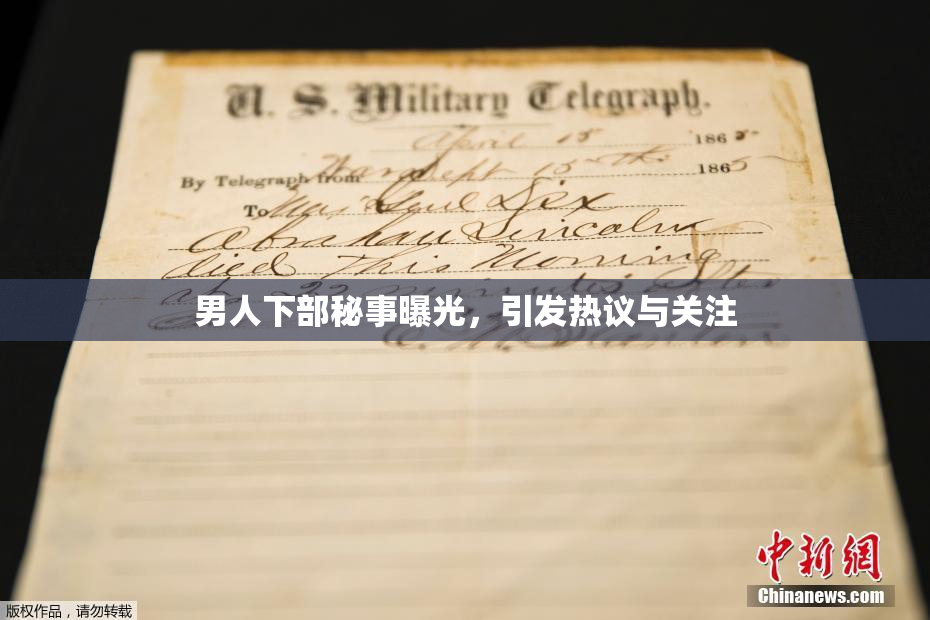 U. S. Military Telegraph.
April 15 1865
By Telegraph from War Dept 15th 1865
To Maj Genl Dix
Abraham Lincoln
died this Morning
at 22 minutes after
男人下部秘事曝光，引发热议与关注
E. M. Stanton
中新网
Chinanews.com
版权作品，请勿转载